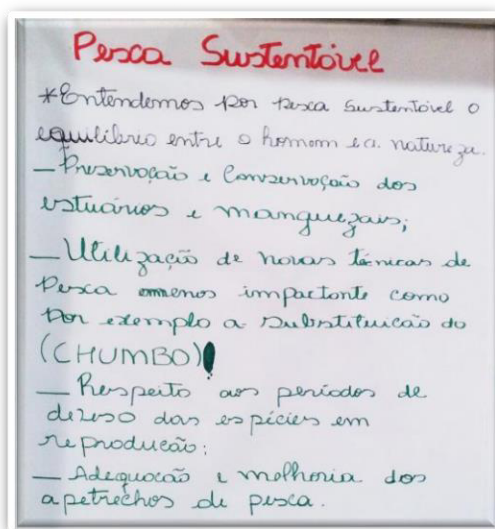 Pesca Sustentável
*Entendemos por pesca sustentável o
equilíbrio entre o homem e a natureza.
— Preservação e Conservação dos
estuários e manguezais;
— Utilização de novas técnicas de
pesca menos impactante como
por exemplo a substituição do
(CHUMBO)
— Respeito aos períodos de
defeso das espécies em
reprodução;
— Adequação e melhoria dos
apetrechos de pesca.